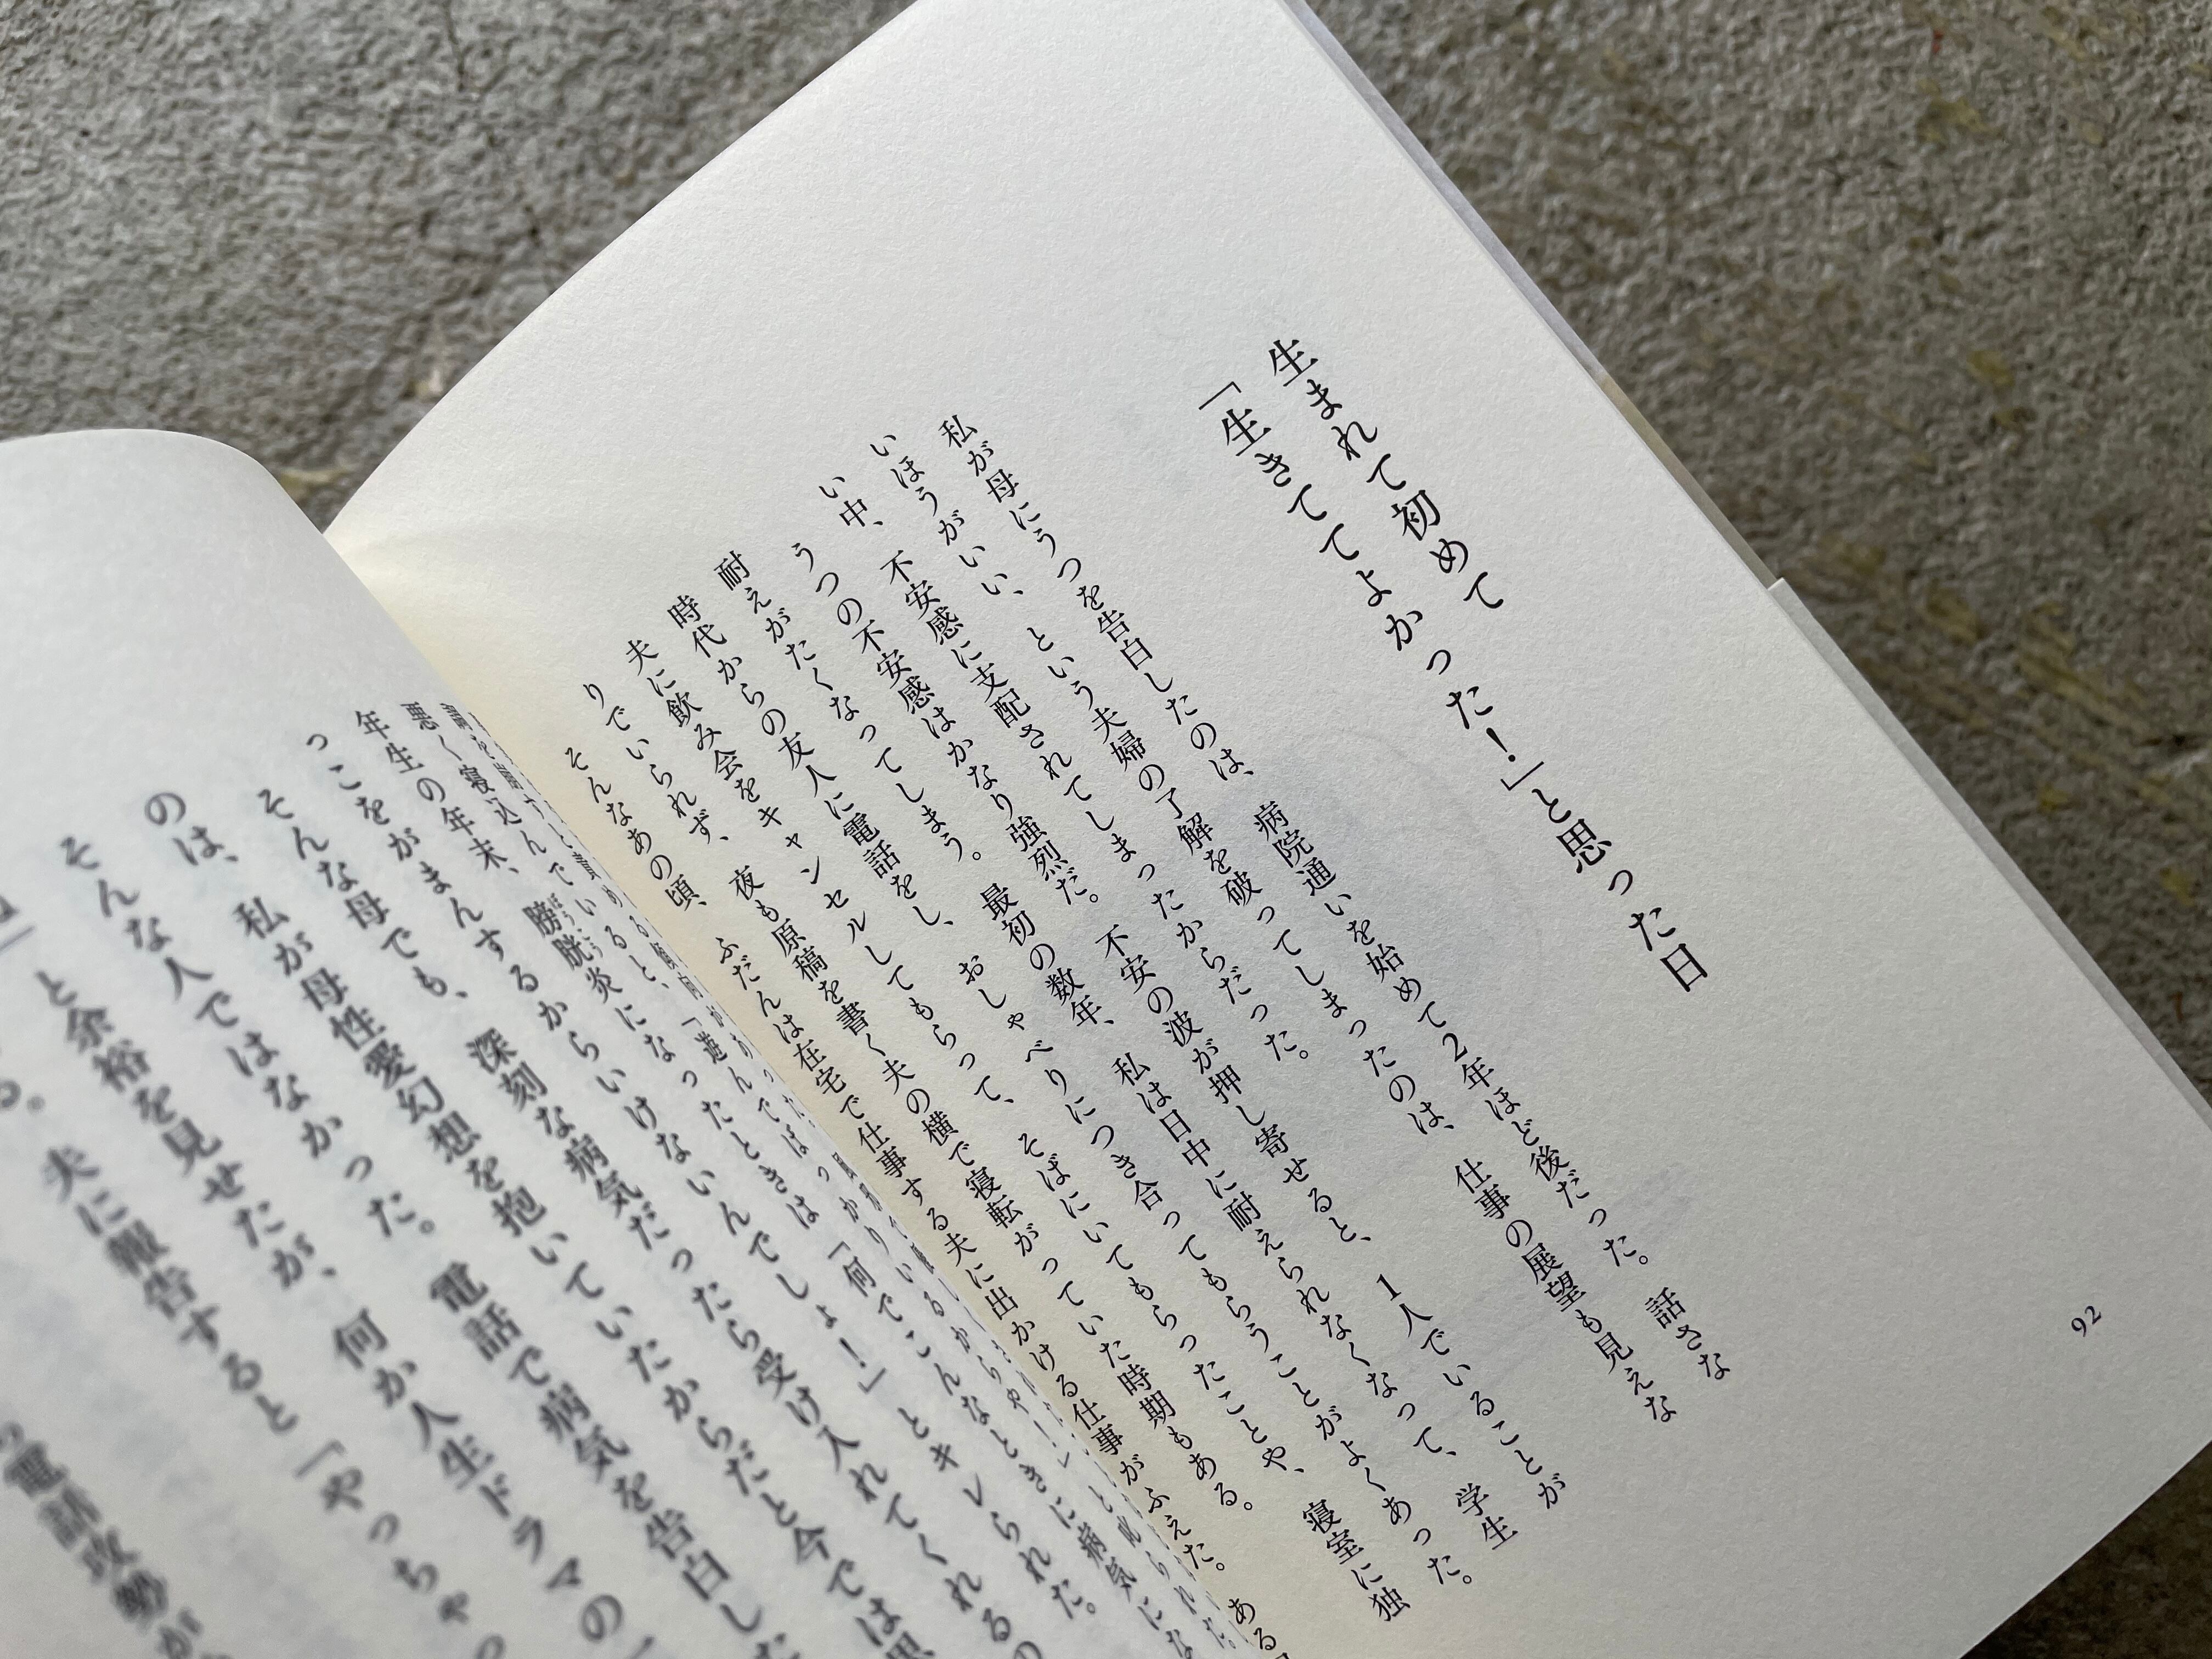 92
生まれて初めて
「生きててよかった！」と思った日
私が母にうつを告白したのは、病院通いを始めて2年ほど後だった。話さな
いほうがいい、という夫婦の了解を破ってしまったのは、仕事の展望も見えな
い中、不安感に支配されてしまったからだった。
うつの不安感はかなり強烈だ。不安の波が押し寄せると、1人でいることが
耐えがたくなってしまう。最初の数年、私は日中に耐えられなくなって、学生
時代からの友人に電話をし、おしゃべりにつき合ってもらうことがよくあった。
夫に飲み会をキャンセルしてもらって、そばにいてもらったことや、寝室に独
りでいられず、夜も原稿を書く夫の横で寝転がっていた時期もある。
そんなあの頃、ふだんは在宅で仕事する夫に出かける仕事がふえた。ある
悪く寝込んでいると、「遊んでばっかりいるからや！」と叱られた。
年生の年末、膀胱炎になったときは「何でこんなときに病気にな
っこをがまんするからいけないんでしょ！」とキレられた。
そんな母でも、深刻な病気だったら受け入れてくれるの
のは、私が母性愛幻想を抱いていたからだと今では思
そんな人ではなかった。電話で病気を告白した
」と余裕を見せたが、何か人生ドラマの一
る。夫に報告すると「やっちゃっ
電話攻勢が